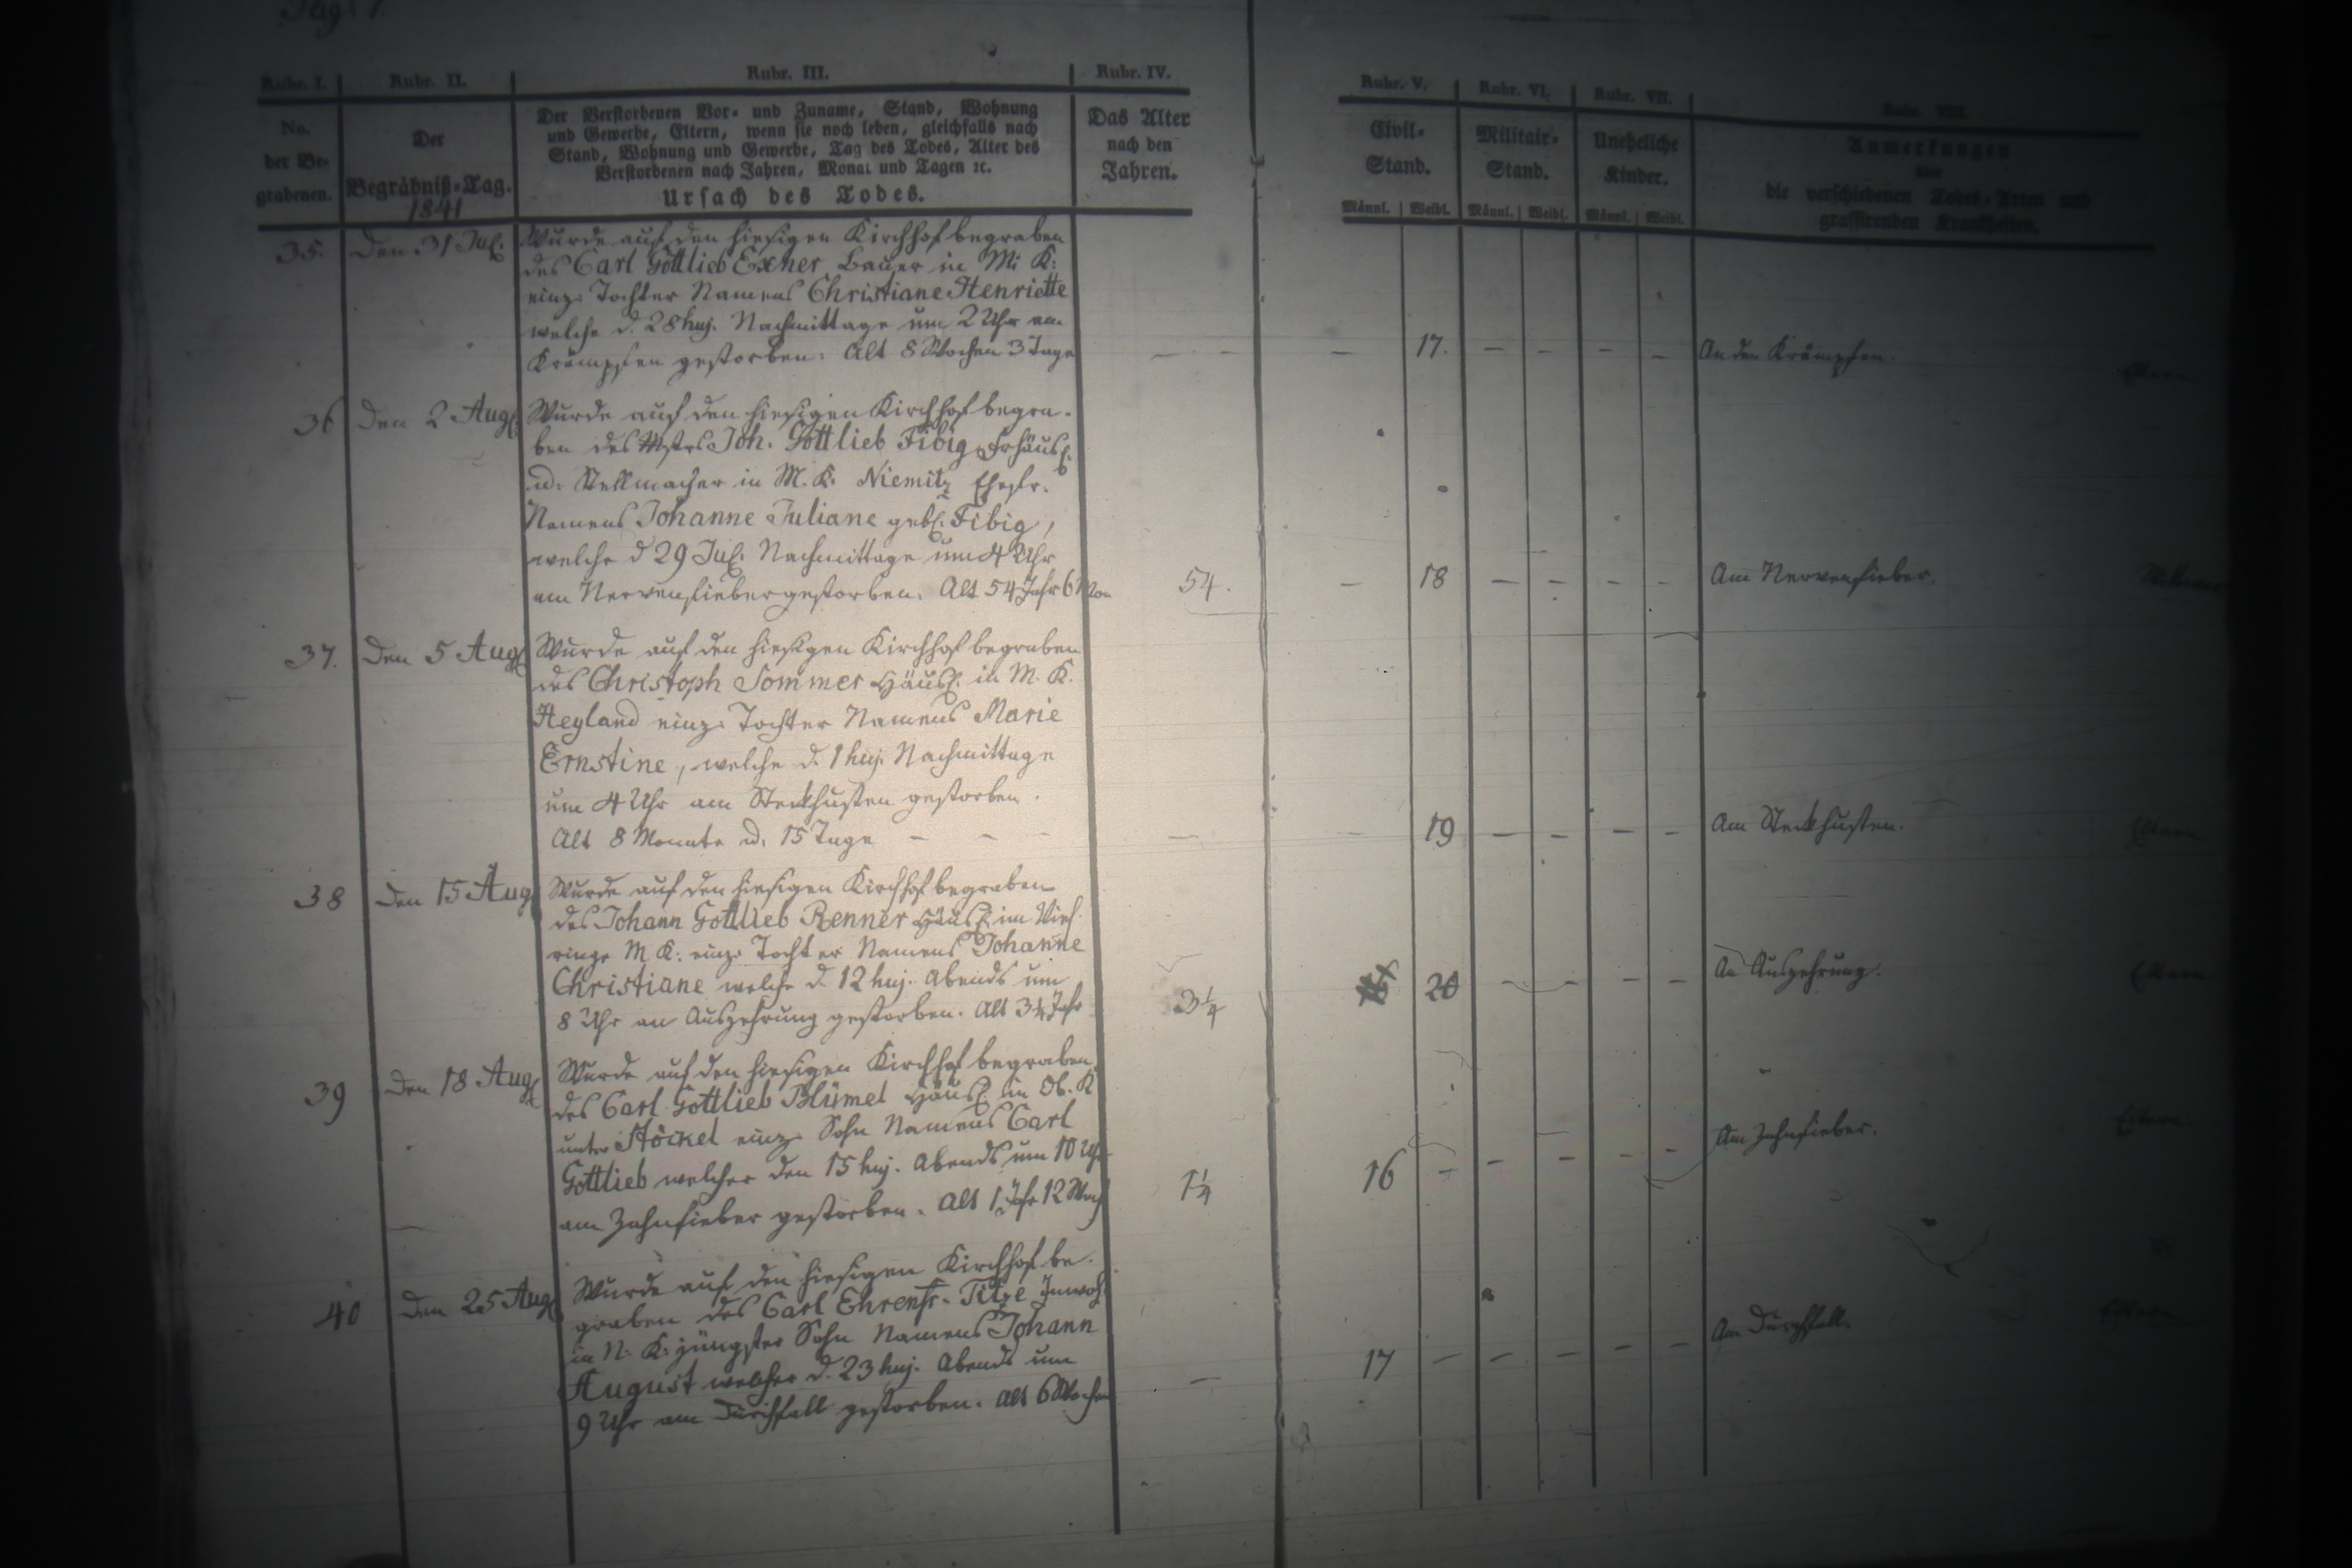 Pag: 7.
Rubr. I. Rubr. II. Rubr. III. Rubr. IV. Rubr. V. Rubr. VI. Rubr. VII. Rubr. VIII.
No. der Be- grabenen.
Der Begräbniß-Tag.
1841
Der Verstorbenen Vor- und Zuname, Stand, Wohnung
und Gewerbe, Eltern, wenn sie noch leben, gleichfalls nach
Stand, Wohnung und Gewerbe, Tag des Todes, Alter des
Verstorbenen nach Jahren, Monat und Tagen ꝛc.
Ursach des Todes.
Das Alter
nach den
Jahren.
Civil-
Stand.
Männl. | Weibl.
Militair-
Stand.
Männl. | Weibl.
Uneheliche
Kinder.
Männl. | Weibl.
Anmerkungen
über
die verschiedenen Todes-Arten und
grassirenden Krankheiten.
35. Den 31 Jul. Wurde auf den hiesigen Kirchhof begraben
des Carl Gottlieb Exner Bauer in M: K:
einz: Tochter Namens Christiane Henriette
welche d. 28 huj. Nachmittage um 2 Uhr am
Krämpfen gestorben: Alt 8 Wochen 3 Tage — — — 17. — — — — An den Krämpfen. Eltern
36 Den 2 Aug. Wurde auf den hiesigen Kirchhof begra-
ben des Mstrs Joh. Gottlieb Fibig Frhäusl.
u. Stellmacher in M. K. Niemitz Ehefr.
Namens Johanne Juliane geb. Fibig,
welche d 29 Jul. Nachmittage um 4 Uhr
am Nervenfieber gestorben. Alt 54 Jahr 6 Mon 54. — 18 — — — — Am Nervenfieber.
37. Den 5 Aug. Wurde auf den hiesigen Kirchhof begraben
des Christoph Sommer Häusl. in M. K.
Heyland einz: Tochter Namens Marie
Ernstine, welche d. 1 huj. Nachmittage
um 4 Uhr am Steckhusten gestorben.
Alt 8 Monate u. 15 Tage — — — — — 19 — — — — Am Steckhusten. Eltern
38 Den 15 Aug. Wurde auf den hiesigen Kirchhof begraben
des Johann Gottlieb Renner Häusl. im
M K: einz: Tochter Namens Johanne
Christiane welche d. 12 huj. Abends um
8 Uhr an Auszehrung gestorben. Alt 3¼ Jahr 3¼ 20 — — — — An Auszehrung. Eltern
39 Den 18 Aug. Wurde auf den hiesigen Kirchhof begraben
des Carl Gottlieb Blümel Häusl. in Ob. K
unter Stöckel einz: Sohn Namens Carl
Gottlieb welcher den 15 huj. Abends um 10 Uhr
am Zahnfieber gestorben. Alt 1 Jahr 12 Woch 1¼ 16 — — — — — Am Zahnfieber. Eltern
40 Den 25 Aug. Wurde auf den hiesigen Kirchhof be-
graben des Carl Ehrenfr. Titze Inwoh.
in N. K: jüngster Sohn Namens Johann
August welcher d. 23 huj. Abends um
9 Uhr am Durchfall gestorben. Alt 6 Wochen — 17 — — — — — Am Durchfall. Eltern